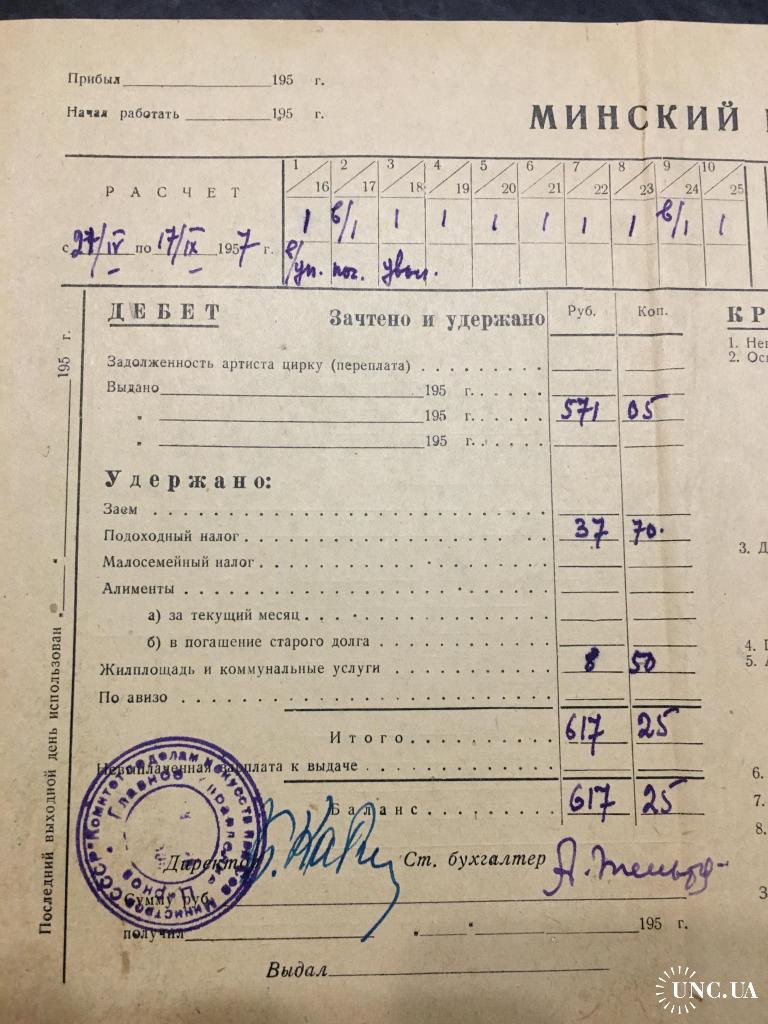 Прибыл 195 г.
Начал работать 195 г.
МИНСКИЙ
РАСЧЕТ
1 2 3 4 5 6 7 8 9 10
16 17 18 19 20 21 22 23 24 25
1 в/1 1 1 1 1 1 1 в/1 1
с 27/IV по 17/IX 1957 г.
увол.
ДЕБЕТ Зачтено и удержано Руб. Коп. КР
1. Не
2. Ос
Задолженность артиста цирку (переплата)
Выдано 195 г.
" 195 г. 571 05
" 195 г.
Удержано:
Заем
Подоходный налог 37 70
3. Д
Малосемейный налог
Алименты
а) за текущий месяц
б) в погашение старого долга
4.
Жилплощадь и коммунальные услуги 8 50
5.
По авизо
Итого 617 25
Невыплаченная зарплата к выдаче
6.
Баланс 617 25
7.
8.
Директор Ст. бухгалтер
Сумму руб.
3
получил " " 195 г.
Выдал
Последний выходной день использован " " 195 г.
Комитет по делам искусств при Совете Министров СССР
Главное управление
Цирков
UNC.UA